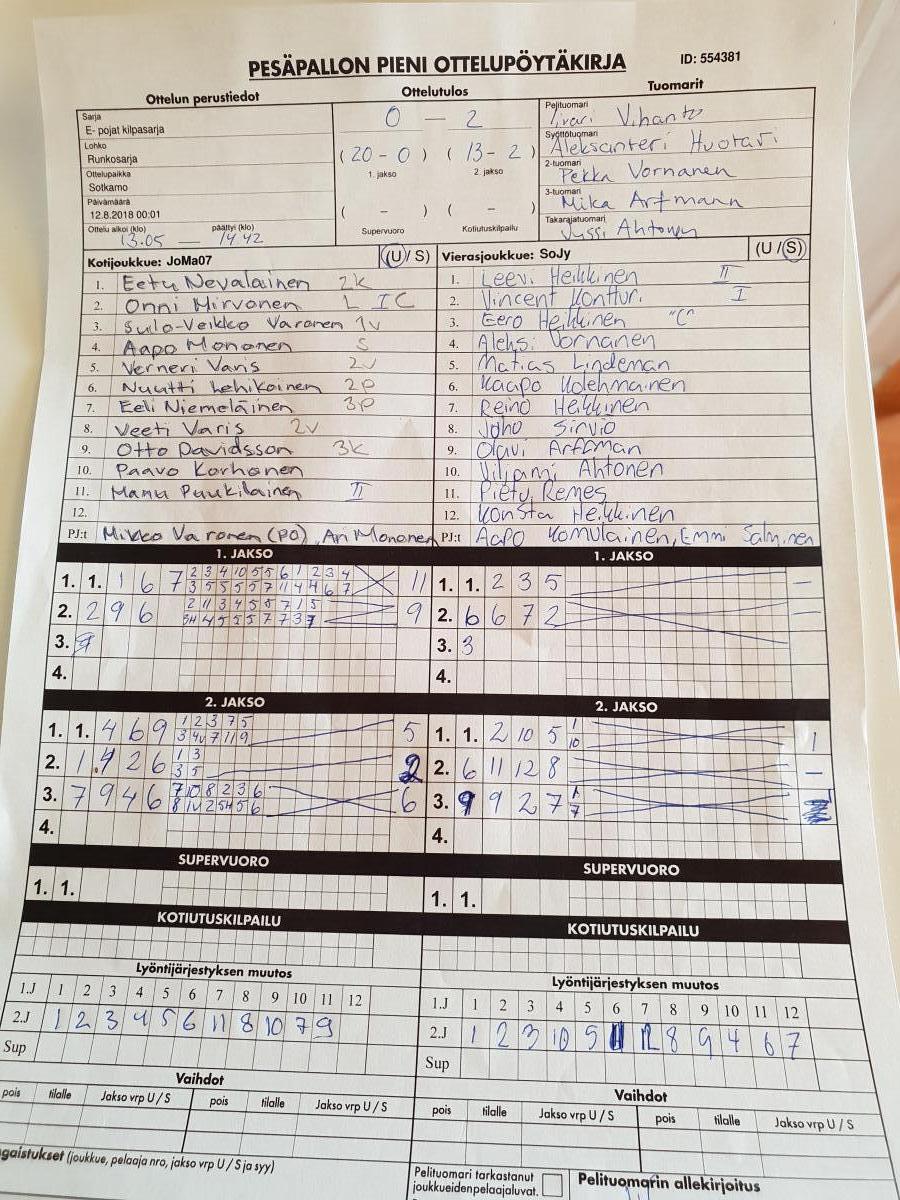 PESÄPALLON PIENI OTTELUPÖYTÄKIRJA
ID: 554381
Ottelun perustiedot
Sarja
E- pojat kilpasarja
Lohko
Runkosarja
Ottelupaikka
Sotkamo
Päivämäärä
12.8.2018 00:01
Ottelu alkoi (klo) päättyi (klo)
13.05 — 14.42
Ottelutulos
0 — 2
(20-0) (13-2)
1. jakso 2. jakso
( - ) ( - )
Supervuoro Kotiutuskilpailu
Tuomarit
Pelituomari
Vihanto
Syöttötuomari
Aleksanteri Huotari
2-tuomari
Pekka Vornanen
3-tuomari
Mika Artmann
Takarajatuomari
Jussi Ahtonen
Kotijoukkue: JoMa07 (U / S)
1. Eetu Nevalainen 2k
2. Onni Hirvonen L I C
3. Sulo-Veikko Varonen 1v
4. Aapo Mononen S
5. Verneri Varis 2v
6. Nuutti Lehikoinen 2p
7. Eeli Niemeläinen 3p
8. Veeti Varis 2v
9. Otto Davidsson 3k
10. Paavo Korhonen
11. Manu Puukilainen II
12.
PJ:t Mikko Varonen (PO), Ari Mononen
Vierasjoukkue: SoJy (U / S)
1. Leevi Heikkinen II
2. Vincent Konttur. I
3. Eero Heikkinen "C"
4. Aleksi Vornanen
5. Matias Lindeman
6. Kaapo Kolehmainen
7. Reino Heikkinen
8. Joho Sirviö
9. Olavi Artman
10. Viljami Ahtonen
11. Pietu Remes
12. Konsta Heikkinen
PJ:t Aapo Komulainen, Emmi Salminen
1. JAKSO
1. 1. 1 6 7 2 3 4 10 5 5 6 1 2 3 4 11
3 5 5 5 5 7 11 4 4 6 7
2. 2 9 6 2 11 3 4 5 5 7 1 5 9
4 5 5 5 7 7 3 7
3. 9
4.
1. JAKSO
1. 1. 2 3 5 —
2. 6 6 7 2 —
3. 3
4.
2. JAKSO
1. 1. 4 6 9 1 2 3 7 5 5
3 4 7 11 9
2. 1 4 2 6 1 3 2
3 5
3. 7 9 4 6 7 10 8 2 3 6 6
4.
2. JAKSO
1. 1. 2 10 5 1 1
10
2. 6 11 12 8 —
3. 9 9 2 7 1
7
4.
SUPERVUORO
1. 1.
SUPERVUORO
1. 1.
KOTIUTUSKILPAILU
KOTIUTUSKILPAILU
Lyöntijärjestyksen muutos
1.J 1 2 3 4 5 6 7 8 9 10 11 12
2.J 1 2 3 4 5 6 11 8 10 7 9
Sup
Lyöntijärjestyksen muutos
1.J 1 2 3 4 5 6 7 8 9 10 11 12
2.J 1 2 3 10 5 11 12 8 9 4 6 7
Sup
Vaihdot
pois tilalle Jakso vrp U / S pois tilalle Jakso vrp U / S
Vaihdot
pois tilalle Jakso vrp U / S pois tilalle Jakso vrp U / S
gaistukset (joukkue, pelaaja nro, jakso vrp U / S ja syy)
Pelituomari tarkastanut
joukkueidenpelaajaluvat.
Pelituomarin allekirjoitus